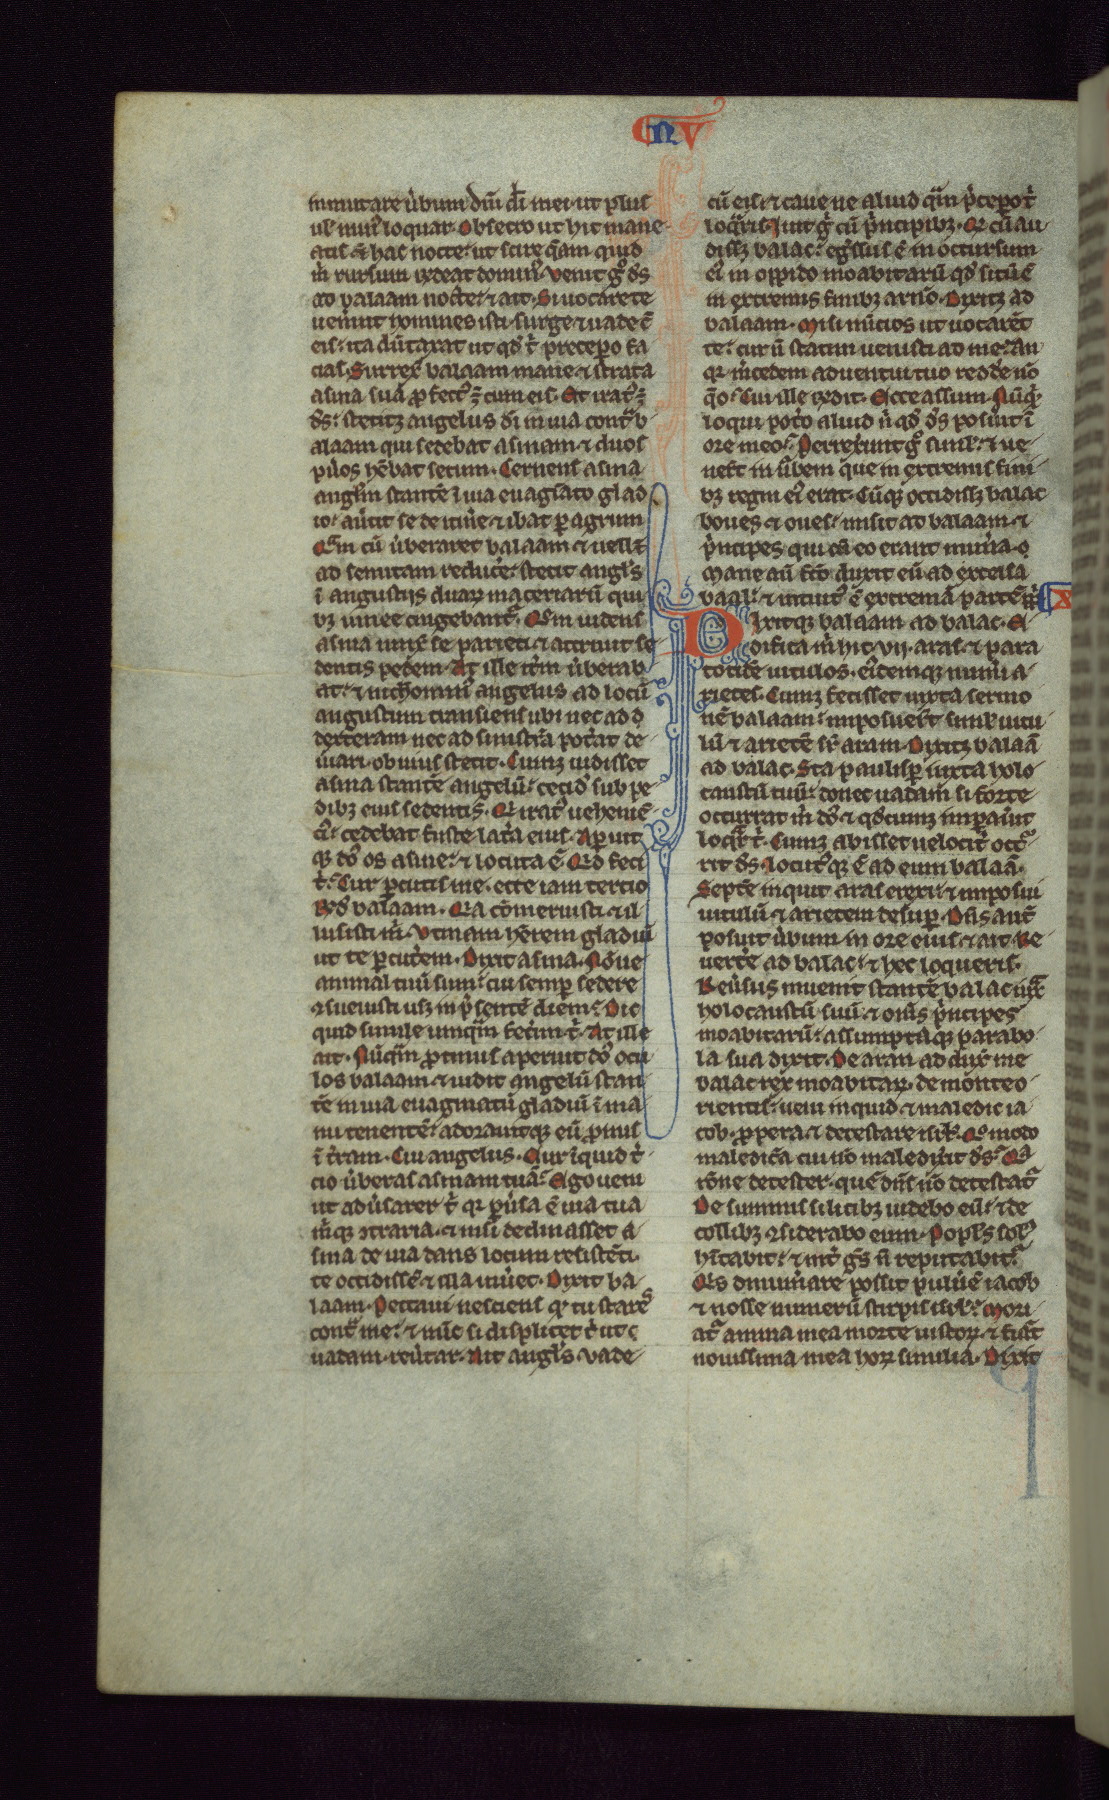 NV
inmutare ūbum dn̄i dī mei ut plus
ul' min' loquar. Obsecro ut hic mane
atis ⁊ hac nocte: ut scire q̄am quid
m̄ rursum r̄deat domin'. Venit g° d̄s
ad balaam nocte: ⁊ ait. Si uocare te
uenīnt homines isti. surge ⁊ uade cū
eis: ita dūtaxat ut qd' t̄ precepero fa
cias. Surrex̄ balaam mane ⁊ strata
asina sua p fect' ē cum eis. Et irat' ē
d̄s: stetitq; angelus dī in uia contᵃ b
alaam qui sedebat asinam ⁊ duos
pūos hēbat secum. Cernens asina
angl'm stantē ī uia euagīato glad
io: aūtit se de itīne ⁊ ibat p agrum
Qᵃm cū ūberaret balaam ⁊ uell; 
ad semitam reducē: stetit angl's
ī angustijs duaꝝ maceriarū qui
bꝫ uinee cingebantᵘ. Qᵃm uidens
asina iunx̄ se parieti ⁊ attriuit se
dentis pedem. At ille itm̄ ūberab
at: ⁊ nichomin' angelus ad locū
angustum transiens ubi nec ad d
dexteram nec ad sinistrā pot̄at de
uiari. obuius stetit. Cumq; uidisset
asina stantē angelū: cecid' sub pe
dibꝫ eius sedentis. Qi irat' uehemē
ti': cedebat fuste latᵃa eius. Apuit
q; d̄s os asine: ⁊ locuta ē. Qid feci
t̄: Cur pcutis me. ecce iam tercio
Rn̄d' balaam. Qia cōmeruisti ⁊ il
lusisti m̄. Vtinam hērem gladiū
ut te pcut̄em. Dixit asina. Nōne
animal tuū sum: cui semp sedere
ꝯsueuisti usq; in p̄sentē diem: Dic
quid simile umqᵃm fec̄im t̄. At ille
ait. Nūqᵃm. ptinus aperuit d̄s ocu
los balaam ⁊ uidit angelū stan
tē in uia euaginatū gladiū ī ma
nu tenentē: adorauitq; eū pnus
ī t̄ram. Cui angelus. Cur īquid t̄
cio ūberas asinam tuā: Ego ueni
ut adūsarer t̄ qᵃ pūsa ē uia tua
m̄q; ꝯtraria. ⁊ nisi declinasset a
sina de uia dans locum resistēti.
te occidissē ⁊ illa uiūet. Dixit ba
laam. Peccaui nesciens qᵈ tu stares
contᵃ me: ⁊ nūc si displicet t̄ ut
uadam. reūtar. Ait angl's. Vade
cū eis: ⁊ caue ne aliud qᵃm p̄cepot̄
loqᵃris. Iuit g° cū p̄ncipibꝫ. Qd' cū au
disslꝫ balac: eg̃ssus ē in occursum
ei' in oppido moabitarū qd' sitū ē
in extremis finibꝫ arnō. Dixitq; ad
balaam. Misi nūcios ut uocarēt
te: cur n̄ statim uenisti ad me: an
qᵃ m̄cedem aduentui tuo redde nō
q̄o: Cui ille r̄dit. Ecce assum. Nūqᵈ
loqui pot̄o aliud n̄ qd' d̄s posūit ī
ore meo: Perrexunt g° simł: ⁊ ue
nert in ūbem que in extremis fini
bꝫ regni ei' erat. Cūq; occidissꝫ balac
boues ⁊ oues: misit ad balaam ⁊
p̄ncipes qui cū eo erant muń̄a.
Mane aū fc̄o duxit eū ad excelsa
baal: ⁊ intuit' ē extremā partē
X
Dixitq; balaam ad balac. E
difica m̄ hic. vij. aras. ⁊ para
totidē uitulos. ei'demq; num̄i a
rietes. Cumq; fecisset iuxta sermo
nē balaam: imposuert siml' uitu
lū ⁊ arietē sr̄ aram. Dixitq; balaā
ad balac. Sta paulisp iuxta holo
caustū tuū: donec uadam si forte
occurrat m̄ d̄s ⁊ qd'cumq; impaūit
loqᵃr t̄. Cumq; abisset uelocit̄ occᵘ
rit d̄s. Locut'q; ē ad eum balaā.
Septē inquit aras erexi: ⁊ imposui
uitulū ⁊ arietem desup. Dn̄s aut̄
posuit ūbum in ore eius. ⁊ ait. Re
uertē ad balac: ⁊ hec loqueris.
Reūsus inuenit stantē balac iuxᵃ
holocaustū suū. ⁊ om̄s p̄ncipes
moabitarū: assumptaq; parabo
la sua dixit. De aran adduxᵗ me
balac rex moabitaꝝ. de monte o
rientis: ueni inquid ⁊ maledic ia
cob. ppera ⁊ detestare isrł. Qi modo
maledicā cui nō maledix̄it d̄s: Qᵃ
rōne detester. quē dn̄s nō detestatᵘ
De summis silicibꝫ uidebo eū: ⁊ de
collibꝫ ꝯsiderabo eum. Popl's sol'
hītabit: ⁊ int̄ ḡs n̄ reputabitᵘ.
Qis dinum̄are possit puluēē iacob
⁊ nosse numerū stirpis isrł: Mori
atᵘ anima mea morte iustoꝝ. ⁊ fiāt
nouissima mea hoꝝ similia. Dixit